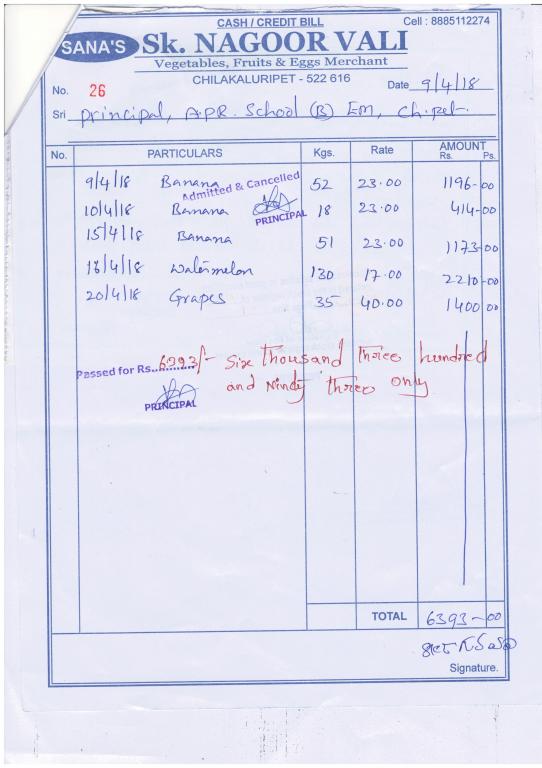 CASH / CREDIT BILL
Cell : 8885112274
SANA'S Sk. NAGOOR VALI
Vegetables, Fruits & Eggs Merchant
CHILAKALURIPET - 522 616
No. 26 Date 9/4/18
Sri principal, A.P.R. School (B) EM, Ch.pet.
No. PARTICULARS Kgs. Rate AMOUNT
Rs. Ps.
9/4/18 Banana 52 23.00 1196-00
Admitted & Cancelled
10/4/18 Banana 18 23.00 414-00
PRINCIPAL
15/4/18 Banana 51 23.00 1173-00
18/4/18 Watermelon 130 17.00 2210-00
20/4/18 Grapes 35 40.00 1400 00
Passed for Rs. 6393/- Six Thousand three hundred
and Nindy three only
PRINCIPAL
TOTAL 6393-00
Signature.